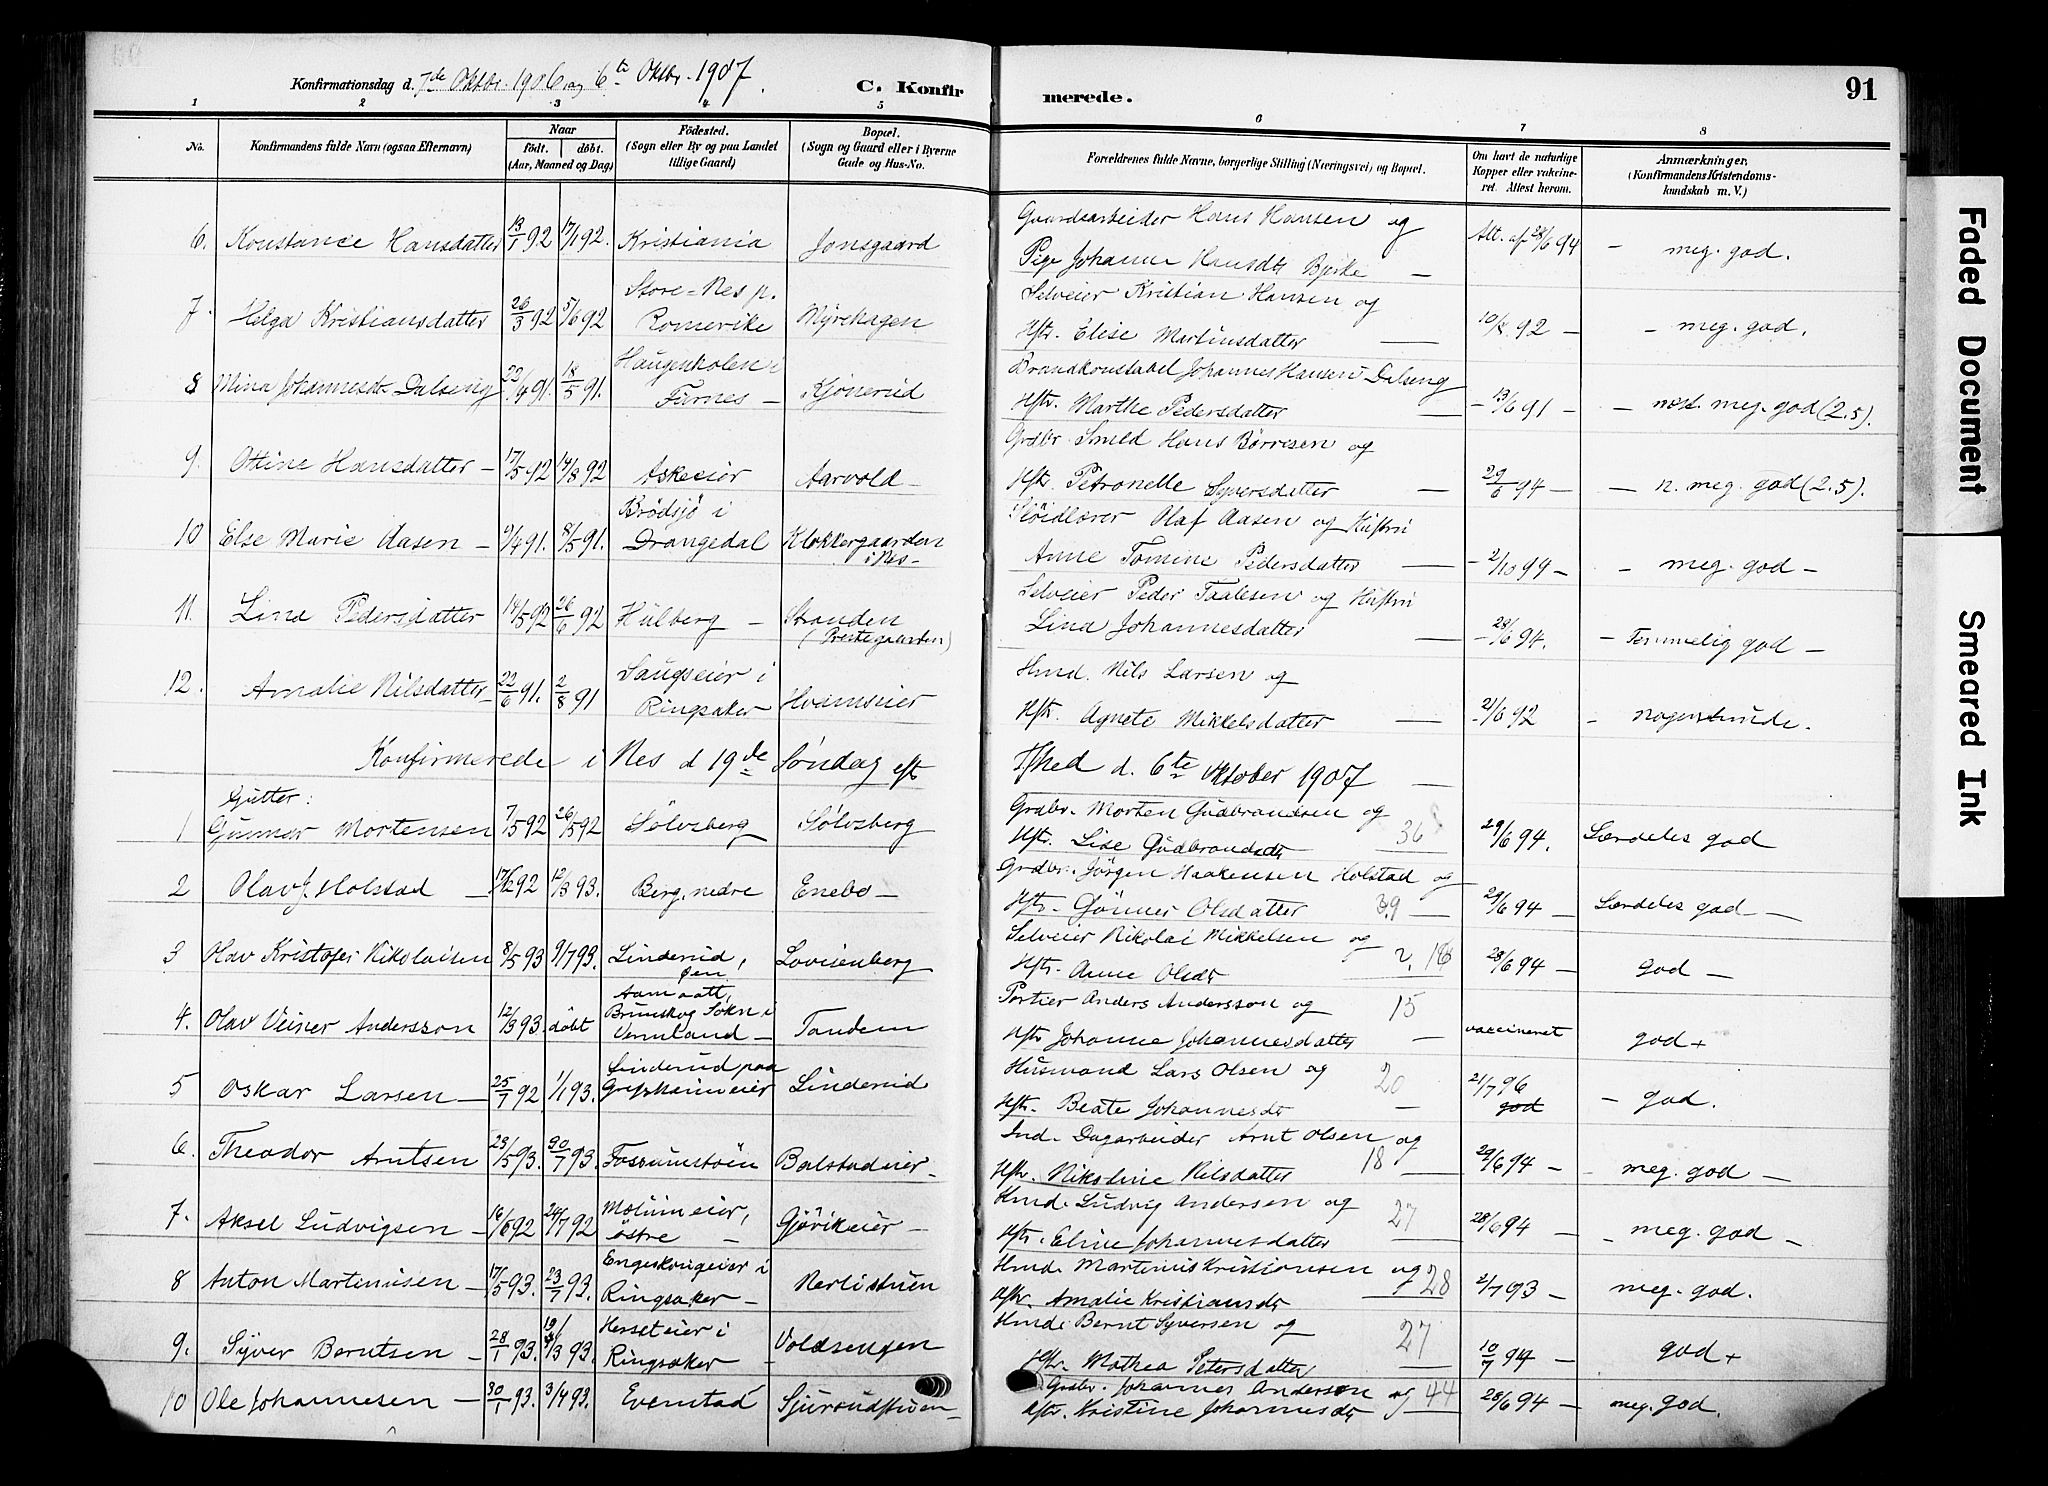 Konfirmationsdag d. 7de Oktbr. 1906 og 6te Oktbr. 1907.
C. Konfirmerede.
91
1 2 3 4 5 6 7 8
No.
Konfirmandens fulde Navn (ogsaa Efternavn)
Naar
født. døbt.
(Aar, Maaned og Dag)
Fødested.
(Sogn eller By og paa Landet
tillige Gaard)
Bopæl.
(Sogn og Gaard eller i Byerne
Gade og Hus-No.
Forældrenes fulde Navne, borgerlige Stilling (Næringsvei) og Bopæl.
Om havt de naturlige
Kopper eller vakcine-
ret. Attest herom.
Anmærkninger,
(Konfirmandens Kristendoms-
kundskab m. V.)
6. Konstance Hansdatter 13/1 92 17/1 92. Kristiania Jonsgaard
Gaardsarbeider Hans Hansen og
Pige Johanne Hansdt. Bjerke — Att. af 28/6 94 — meg. god.
7. Helga Kristiansdatter 26/3 92 5/6 92 Store-Nes p.
Romerike Myrehagen
Selveier Kristian Hansen og
Hstr. Elise Martinsdatter — 10/8 92 — — meg. god.
8 Mina Johannesdt. Dalseng 22/4 91. 18/5 91. Haugenkolen i
Furnes — Kjønerud
Brandkonstabel Johannes Hansen Dalseng
Hstr. Marthe Pedersdatter — 13/6 91 — — næst. meg. god (2.5).
9. Otine Hansdatter — 17/5 92 14/8 92 Askeeiør Aarvold —
Grdbr. Smed Hans Børresen og
Hstr. Petronelle Syversdatter — 29/6 94 — — n. meg. god (2.5).
10 Else Marie Aasen — 9/4 91. 8/5 91. Brødsjø i
Drangedal Klokkergaarden
i Nes —
Sløidlærer Olaf Aasen og Hustru
Anne Tomine Pedersdatter — 2/10 99 — — meg. god —
11. Lina Pedersdatter 14/5 92 26/6 92 Hulberg — Stranden
(Prestegaarden)
Selveier Peder Taalesen og Hustru
Lina Johannesdatter — 28/6 94. — Temmelig god —
12. Amalie Nilsdatter — 22/6 91. 2/8 91 Saugseier i
Ringsaker Hvamseier
Hmd. Nils Larsen og
Hstr. Agnete Mikkelsdatter — 21/6 92 — nogenlunde.
Konfirmerede i Nes d 19de Søndag eft Tfhed d. 6te Oktober 1907 —
Gutter:
1 Gunnar Mortensen 7/5 92 26/5 92 Sølvsberg Sølvsberg
Grdbr. Morten Gudbrandsen og
Hstr. Lise Gudbrandsdt 36 29/6 94. Særdeles god
2 Olav J. Holstad — 17/12 92 12/3 93. Berg, nedre Enebo —
Grdbr. Jørgen Haakensen Holstad og
Hstr. Gunner Olsdatter 39 — 29/6 94 — Særdeles god —
3 Olav Kristofer Nikolaisen 8/5 93 9/7 93. Linderud,
øen Lovisenberg
Selveier Nikolai Mikkelsen og
Hstr. Anne Olsdt 28/6 94 — god —
4. Olav Veiner Andersson 12/3 93. døbt Aamaatt,
Brunskog Sokn i
Vermland — Tandem
Portier Anders Andersson og 15
Hstr Johanne Johannesdatter — vaccineret god +
5 Oskar Larsen — 25/7 92 1/1 93. Linderud paa
Linderud
Husmand Lars Olsen og 20
Hstr. Beate Johannesdt — 21/7 96
god — god.
6. Theodor Arntsen 23/5 93. 30/7 93. Fossumstøen Balstadeier —
Ind. Dagarbeider Arnt Olsen og
Hstr. Nikoline Nilsdatter 18 — 29/6 94 — — meg. god —
7. Aksel Ludvigsen — 16/6 92 24/7 92 Molumeier,
østre — Gjøvikeier —
Hmd. Ludvig Andersen og
Hstr. Eline Johannesdatter 27 28/6 94 — meg. god —
8 Anton Martinusen — 17/5 93. 23/7 93. Engeskougeier i
Ringsaker — Nerlistuen
Hmd. Martinus Kristiansen og
Hstr. Amalie Kristiansdt 28 2/7 93 — meg. god.
9. Syver Berntsen — 28/1 93. 19/3 93. Herseteier i
Ringsaker — Voldsengen
Hmd. Bernt Syversen og
Hstr. Mathea Petersdatter 27 10/7 94 — god +
10 Ole Johannesen — 30/1 93. 3/4 93. Evenstad Sjuroudstuen —
Grdbr. Johannes Andersen og
Hstr. Kristine Johannesdt 44 28/6 94 — meg. god.
Faded Document
Smeared Ink